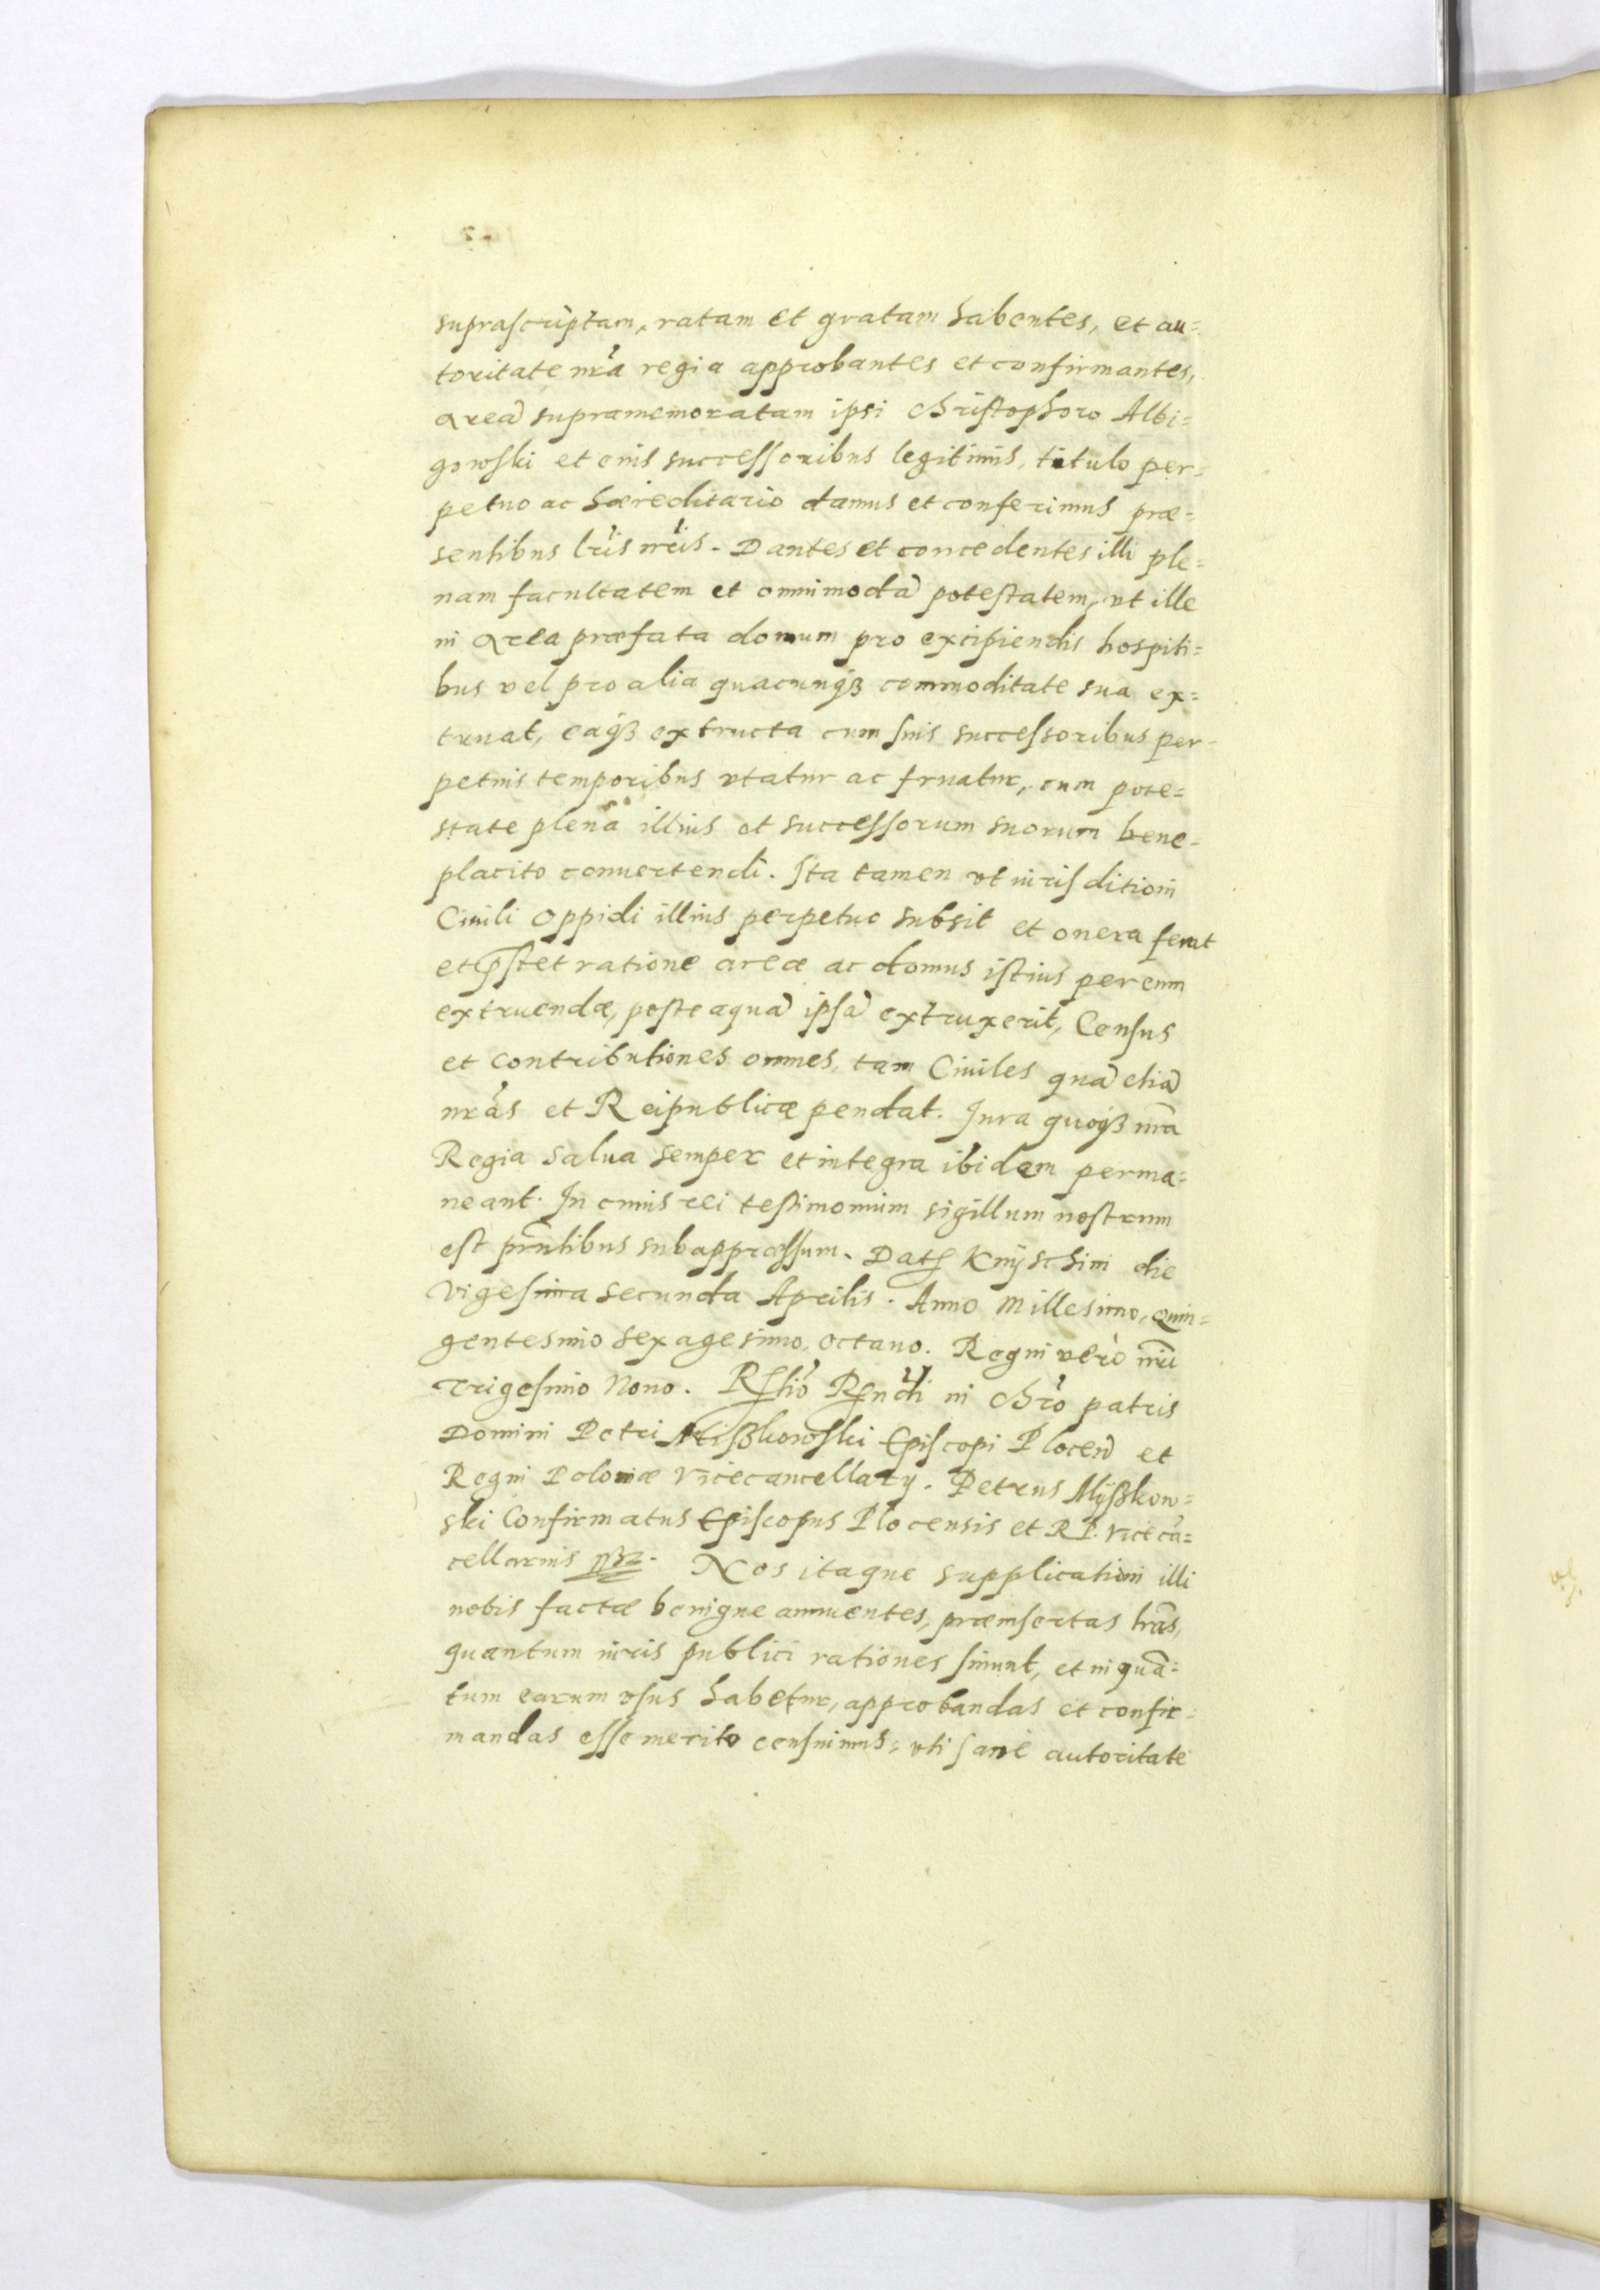 suprascriptam, ratam et gratam habentes, et au=
toritate nrã regia approbantes et confirmantes,
areã supramemoratam ipsi Christophoro Albi=
gowski et eius successoribus legitimis, titulo per=
petuo ac hæreditario damus et conferimus præ=
sentibus lris nris. Dantes et concedentes illi ple=
nam facultatem et omnimodã potestatem, vt ille
in area præfata domum pro excipiendis hospiti=
bus vel pro alia quacunqȝ commoditate sua ex=
truat, eaqȝ extructa cum suis successoribus per=
petuis temporibus vtatur ac fruatur, cum pote=
state plenâ illius et successorum suorum bene=
placito conuertendi. Ita tamen vt iurisditioni
Ciuili oppidi illius perpetuo subsit et onera ferat
et pstet ratione areæ ac domus istius per eum
extruendæ, posteaquã ipsã extruxerit, Census
et contributiones omnes, tam Ciuiles quã etiã
nrãs et Reipublicæ pendat. Jura quoqȝ nrã
Regia salua semper et integra ibidem perma=
neant. In cuius rei testimonium sigillum nostrum
est pñtibus subappressum. Dat Knyschini die
Vigesima secunda Aprilis. Anno Millesimo, Quin=
gentesimo sexagesimo, octauo. Regni verò nrĩ
Trigesimo Nono. Rltiõ Rndi in Chrõ patris
Domini Petri Miszkowski Episcopi Plocen et
Regni Poloniæ Vicecancellarij. Petrus Myszkow=
ski Confirmatus Episcopus Plocensis et R P. Vicecã=
cellarius
Nos itaque supplicationi illi
nobis factæ benigne annuentes, præinsertas lrãs,
quantum iuris publici rationes sinunt, et in quã=
tum earum vsus habetur, approbandas et confir=
mandas esse merito censuimus, vti sanè autoritate